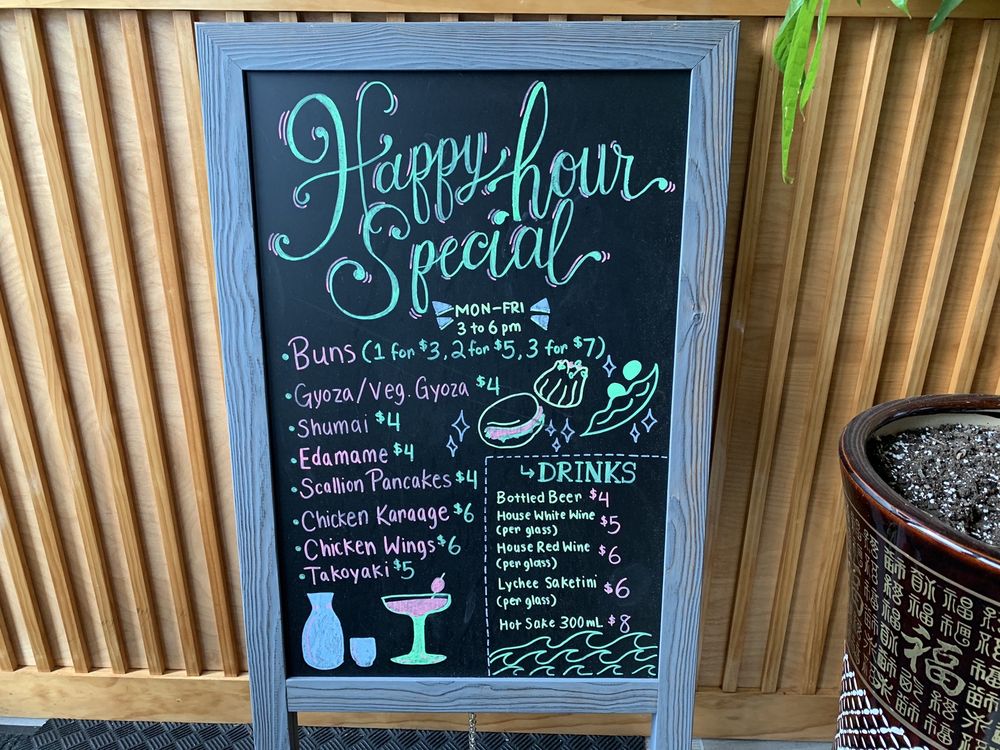 Happy hour
Special
MON-FRI
3 to 6 pm
•Buns (1 for $3, 2 for $5, 3 for $7)
•Gyoza/Veg. Gyoza $4
•Shumai $4
•Edamame $4
•Scallion Pancakes $4
•Chicken Karaage $6
•Chicken Wings $6
•Takoyaki $5
↳DRINKS
Bottled Beer $4
House White Wine $5
(per glass)
House Red Wine $6
(per glass)
Lychee Saketini $6
(per glass)
Hot Sake 300mL $8
福